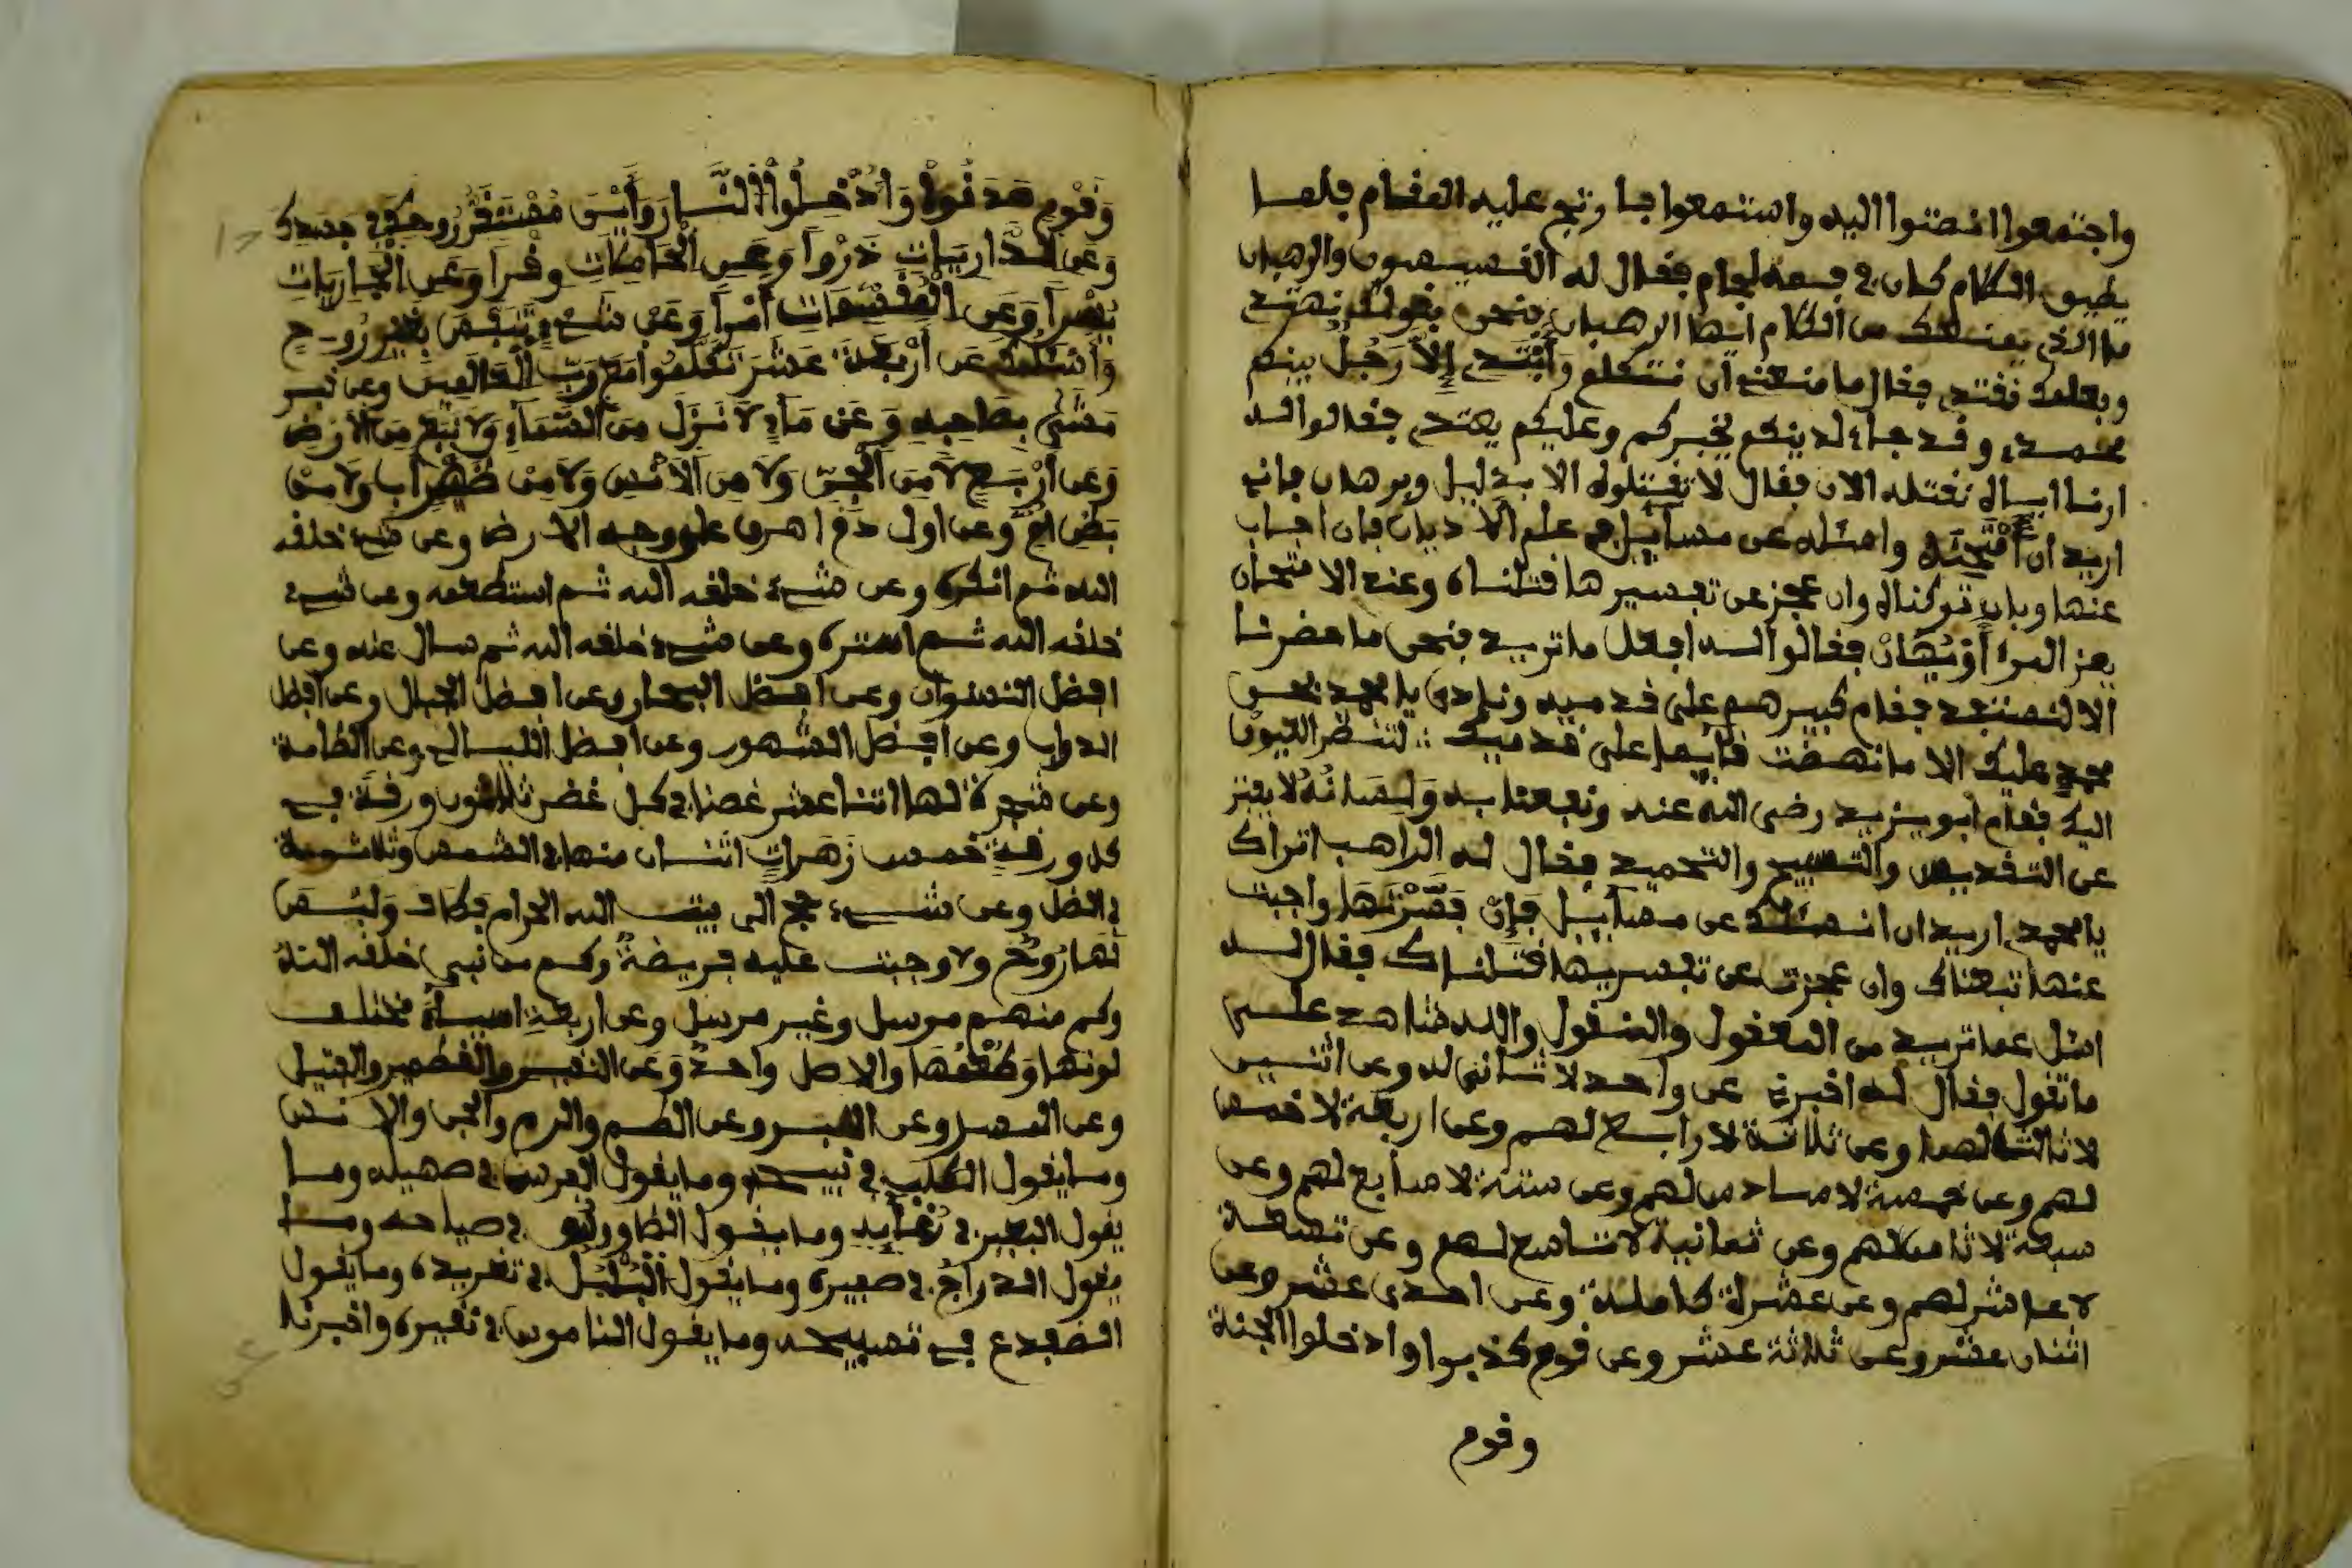 واجتمعوا انصتوا اليه واستمعوا فارتج عليه المقام فلم
يطيق الكلام كان في فمه لجام فقال له القسيسون والرهبان
ما الذي يمنعك من الكلام ايها الرهبان فنحن بقولك نهتدي
وبعلمك نقتدي فقال ما منعني ان نتكلم وابتدي إلا رجل بينكم
محمدي وقد جاء لدينكم يختبركم وعليكم يعتدي فقالوا له
ارنا اياه نقتله الان فقال لا تقتلوه الا بدليل وبرهان فاني
اريد ان أمتحنه واسئله عن مسائيل من علم الاديان فان اجاب
عنها وبان تركناه وان عجز عن تفسيرها قتلناه وعند الامتحان
يعز المرء أو يُهان فقالوا له افعل ما تريد فنحن ما حضرنا
الا لنستفد فقام كبيرهم على قدميه ونادى يا محمد بحق
محمد عليك الا ما نهضت قايما على قدميك لتنظر العيون
اليك فقام أبو يزيد رضي الله عنه ونفعنا به ولسانه لا يفتر
عن التقديس والتسبيح والتحميد فقال له الراهب اتراك
يا محمد اريد ان انسئلك عن مسائيل فإن فسرتها واجبت
عنها تبعناك وان عجزت عن تفسيريها قتلناك فقال له
اسئل عما تريد من المعقول والمنقول والله شاهد على
ما تقول فقال له اخبرني عن واحد لا ثاني له وعن اثنين
لا ثالث لهما وعن ثلاثة لا رابع لهم وعن اربعة لا خمس
لهم وعن خمسة لا سادس لهم وعن ستة لا سابع لهم وعن
سبعة لا ثامن لهم وعن ثمانية لا تاسع لهم وعن تسعة
لا عاشر لهم وعن عشرة كاملة وعن احدى عشر وعن
اثنان عشر وعن ثلاثة عشر وعن قوم كذبوا وادخلوا الجنة
وقوم
وَقَوْمٍ صَدقُوا وَأُدْخِلُوا النَّارَ وَأَيْنَ مُسْتَقَرُّ روحك في جسدك
وَعَن الذَّارِيَاتِ ذَرْوًا وَعَنِ الْحَامِلَاتِ وِقْرًا وَعَنِ الْجَارِيَاتِ
يُسْرًا وَعَنِ الْمُقَسِّمَاتِ أَمْرًا وَعَنْ شَيْءٍ تَنَفَّسَ بِغَيْرِ رُوح
وَأَنْسْئَلُكَ عَن أَرْبَعَةَ عَشَرَ تَكَلَّمُوا مَعَ رَبِّ الْعَالَمِينَ وعن قبر
مَشَى بِصَاحِبِهِ وَعَن مَاءٍ لَا نَزَلَ مِنَ السَّمَاءِ وَلَا نَبَعَ مِنَ الْأَرْضِ
وَعَن أَرْبَعٍ لَا مِنَ الْجِنِّ وَلَا مِنَ الْأَنْسِ وَلَا مِنْ ظَهْرِ أب ولا من
بَطْنِ أمٍّ وعن اول دم اهرق على وجه الارض وعن شيء خلقه
الله ثم انكره وعن شيء خلقه الله ثم استطعمه وعن شيء
خلقه الله ثم اشتره وعن شيء خلقه الله ثم سال عنه وعن
افضل النسوان وعن افضل البحار وعن افضل الجبال وعن افضل
الدواب وعن افضل الشهور وعن افضل الليالي وعن الطامة
وعن شجرة لها اثنا عشر غصنا في كل غصن ثلاثون ورقة في
كل ورقة خمس زهرات اثنان منها في الشمس وثلاثة
في الظل وعن شيء حج الى بيت الله الحرام فطاف وليس
لها روح ولا وجبت عليه فريضة وكم من نبي خلقه الله
وكم منهم مرسل وغير مرسل وعن اربعة اشياء مختلف
لونها وطعمها والاصل واحد وعن النقير والقطمير والفتيل
وعن الطم والرم والجن والانس
وما يقول الكلب في نبيحه وما يقول الفرس في صهيله وما
يقول البعير في رغايه وما يقول الطاووس في صياحه وما
يقول الدراج في صفيره وما يقول البلبل في تغريده وما يقول
الضفدع في تسبيحه وما يقول الناموس في نقيره واخبرنا